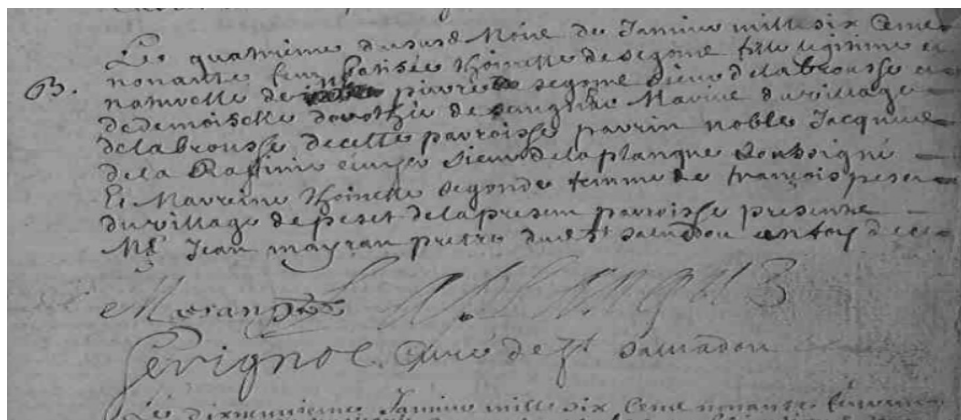 Le quatrieme du susd Mois de Janvier mille six cens
B. nonante feut batisée thoinette de segome fille legitime et
naturelle de pierre segome sieur de labrousse et
de demoiselle dorothée de Mariée du village
de labrousse de cette parroisse parrin noble Jacques
de la ecuyer sieur de la planque soubsigné
Et Marreine thoinette segonde femme de françois peset
du village de peset de la presen parroisse presens
Mr Jean mayran pretre du st salvadou en foy de ce
Meran
Gevignol Curé de St salvadou
Le dixneuvieme Janvier mille six cens nonante